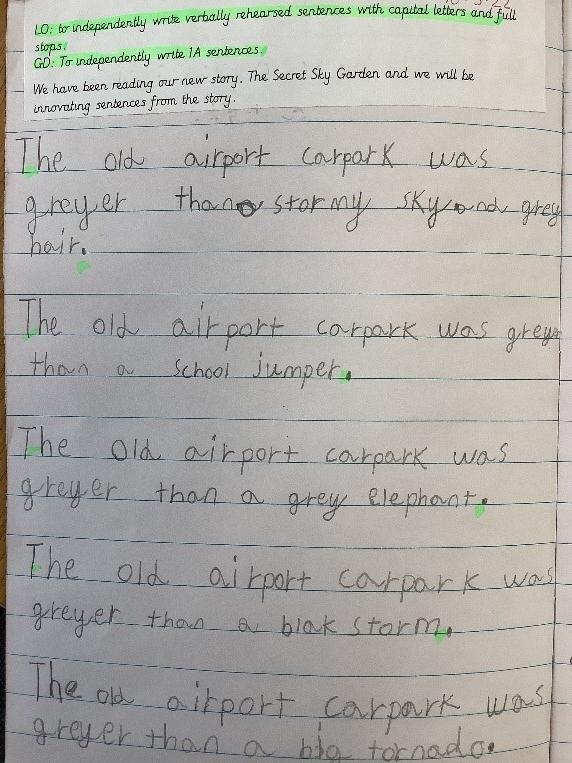 LO: to independently write verbally rehearsed sentences with capital letters and full
stops.
GD: To independently write 1A sentences.
We have been reading our new story. The Secret Sky Garden and we will be
innovating sentences from the story.
The old airport carpark was
greyer than a stormy sky and grey
hair.
The old airport carpark was greyer
than a school jumper.
The old airport carpark was
greyer than a grey elephant.
The old airport carpark was
greyer than a blak storm.
The old airport carpark was
greyer than a big tornado.